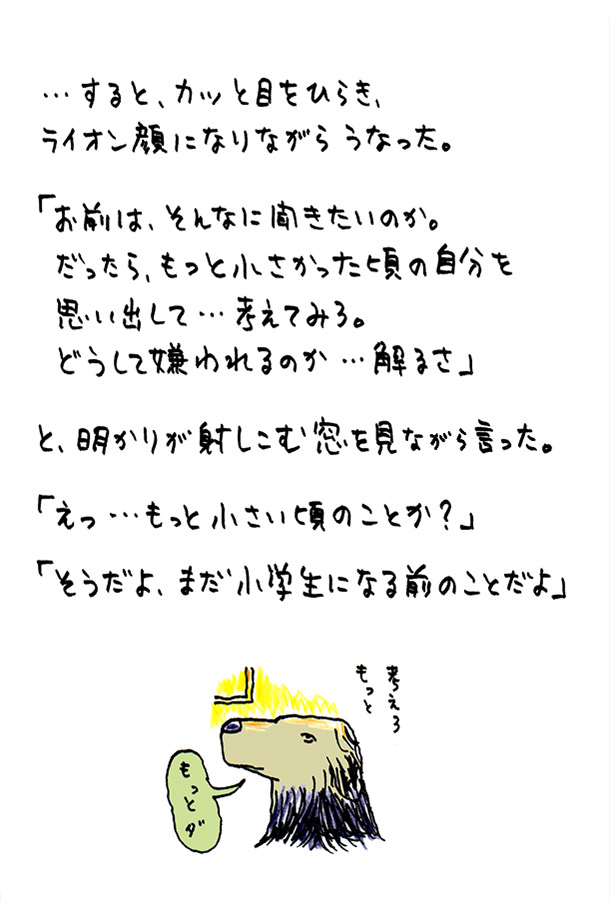 …すると、カッと目をひらき、
ライオン顔になりながら うなった。
「お前は、そんなに聞きたいのか。
だったら、もっと小さかった頃の自分を
思い出して…考えてみろ。
どうして嫌われるのか…解るさ」
と、明かりが射しこむ窓を見ながら言った。
「えっ…もっと小さい頃のことか?」
「そうだよ、まだ小学生になる前のことだよ」
考えろ
もっと
もっとダ